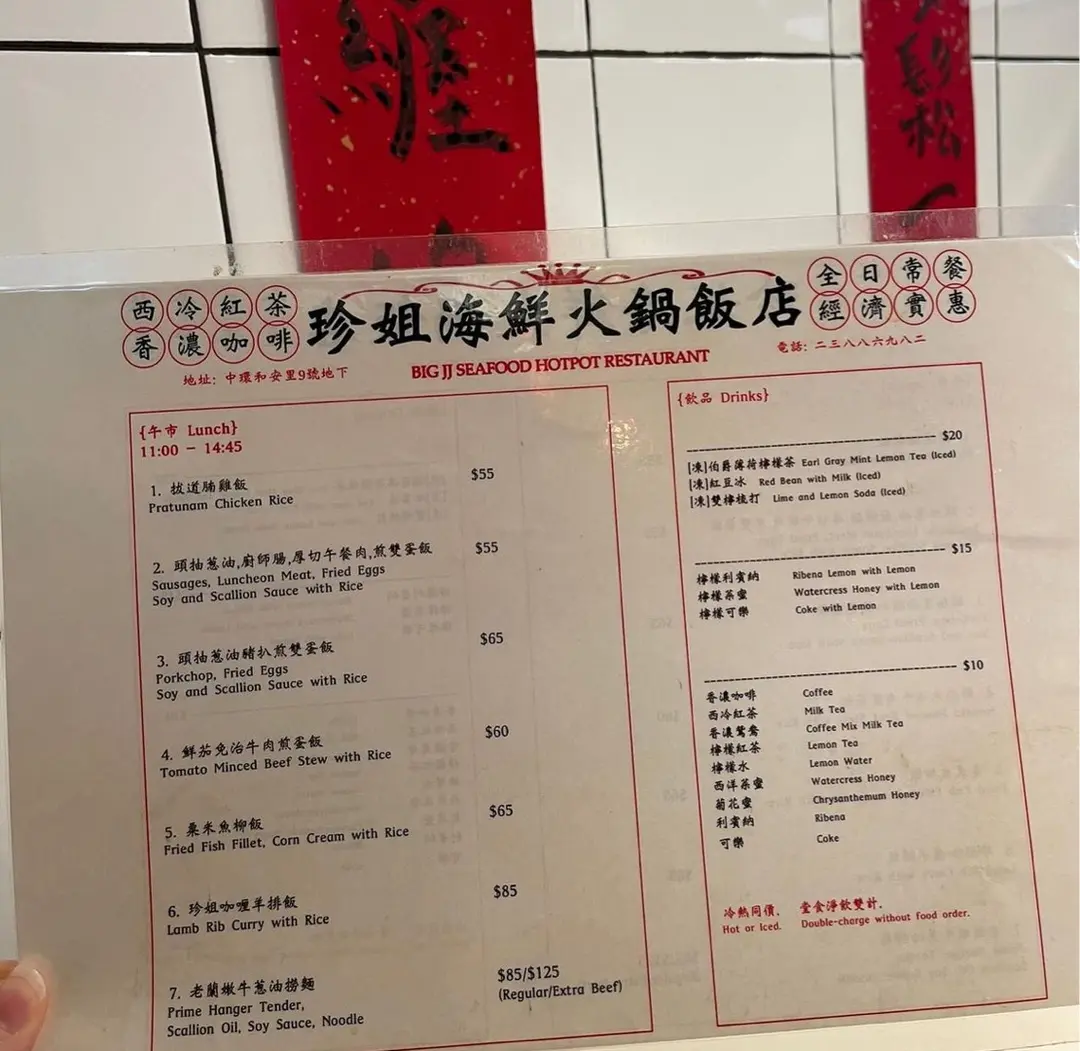 鬆
松
西冷紅茶
香濃咖啡
珍姐海鮮火鍋飯店
全日常餐
經濟實惠
地址: 中環和安里9號地下
BIG JJ SEAFOOD HOTPOT RESTAURANT
電話: 二三八八六九八二
{午市 Lunch}
11:00 – 14:45
1. 拔道腩雞飯 $55
Pratunam Chicken Rice
2. 頭抽蔥油,廚師腸,厚切午餐肉,煎雙蛋飯 $55
Sausages, Luncheon Meat, Fried Eggs
Soy and Scallion Sauce with Rice
3. 頭抽蔥油豬扒煎雙蛋飯 $65
Porkchop, Fried Eggs
Soy and Scallion Sauce with Rice
4. 鮮茄免治牛肉煎蛋飯 $60
Tomato Minced Beef Stew with Rice
5. 粟米魚柳飯 $65
Fried Fish Fillet, Corn Cream with Rice
6. 珍姐咖喱羊排飯 $85
Lamb Rib Curry with Rice
7. 老蘭嫩牛蔥油撈麵 $85/$125
Prime Hanger Tender, (Regular/Extra Beef)
Scallion Oil, Soy Sauce, Noodle
{飲品 Drinks}
$20
[凍]伯爵薄荷檸檬茶 Earl Gray Mint Lemon Tea (Iced)
[凍]紅豆冰 Red Bean with Milk (Iced)
[凍]雙檸梳打 Lime and Lemon Soda (Iced)
$15
檸檬利賓納 Ribena Lemon with Lemon
檸檬茶蜜 Watercress Honey with Lemon
檸檬可樂 Coke with Lemon
$10
香濃咖啡 Coffee
西冷紅茶 Milk Tea
香濃鴛鴦 Coffee Mix Milk Tea
檸檬紅茶 Lemon Tea
檸檬水 Lemon Water
西洋菜蜜 Watercress Honey
菊花蜜 Chrysanthemum Honey
利賓納 Ribena
可樂 Coke
冷熱同價. 堂食淨飲雙計.
Hot or Iced. Double-charge without food order.